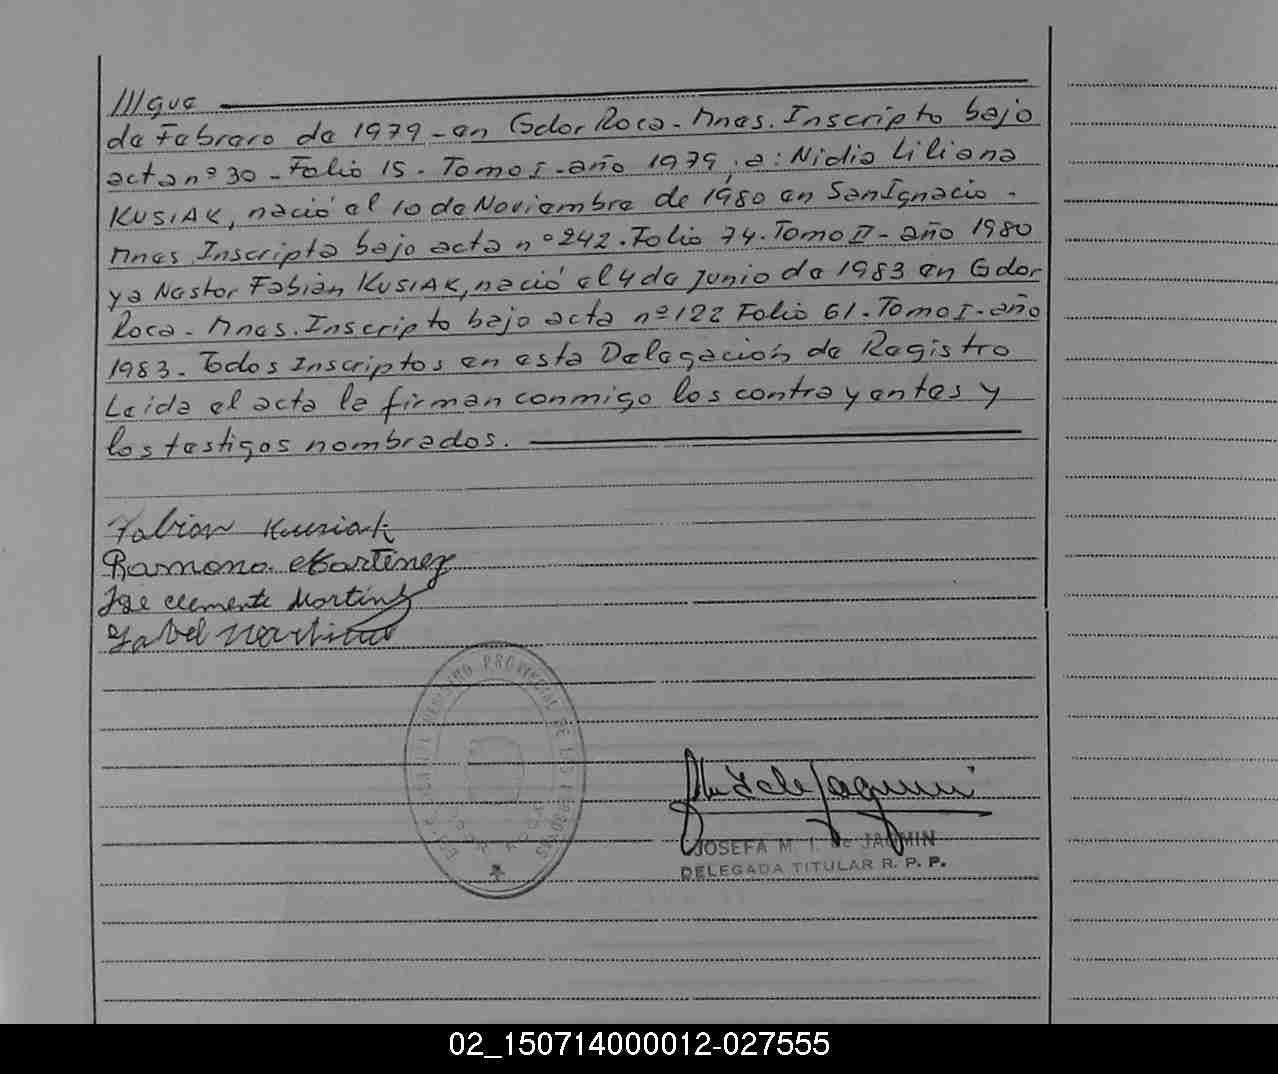 ///gue
de Febrero de 1979 - en Gdor Roca - Mnes. Inscripto bajo
acta nº 30 - Folio 15 - Tomo I - año 1979; a: Nidia Liliana
KUSIAK, nació el 10 de Noviembre de 1980 en San Ignacio -
Mnes Inscripta bajo acta nº 242. Folio 74. Tomo II - año 1980
y a Nestor Fabián KUSIAK, nació el 4 de junio de 1983 en Gdor
Roca - Mnes. Inscripto bajo acta nº 122 Folio 61. Tomo I - año
1983. Todos Inscriptos en esta Delegación de Registro
Leida el acta la firman conmigo los contrayentes y
los testigos nombrados.
Fabian Kusiak
Ramona Martinez
Jose Clemente Martinez
Isabel Martinez
REGISTRO PROVINCIAL DE LAS PERSONAS
GDOR ROCA
JOSEFA M. I. de JAQMIN
DELEGADA TITULAR R. P. P.
02_150714000012-027555